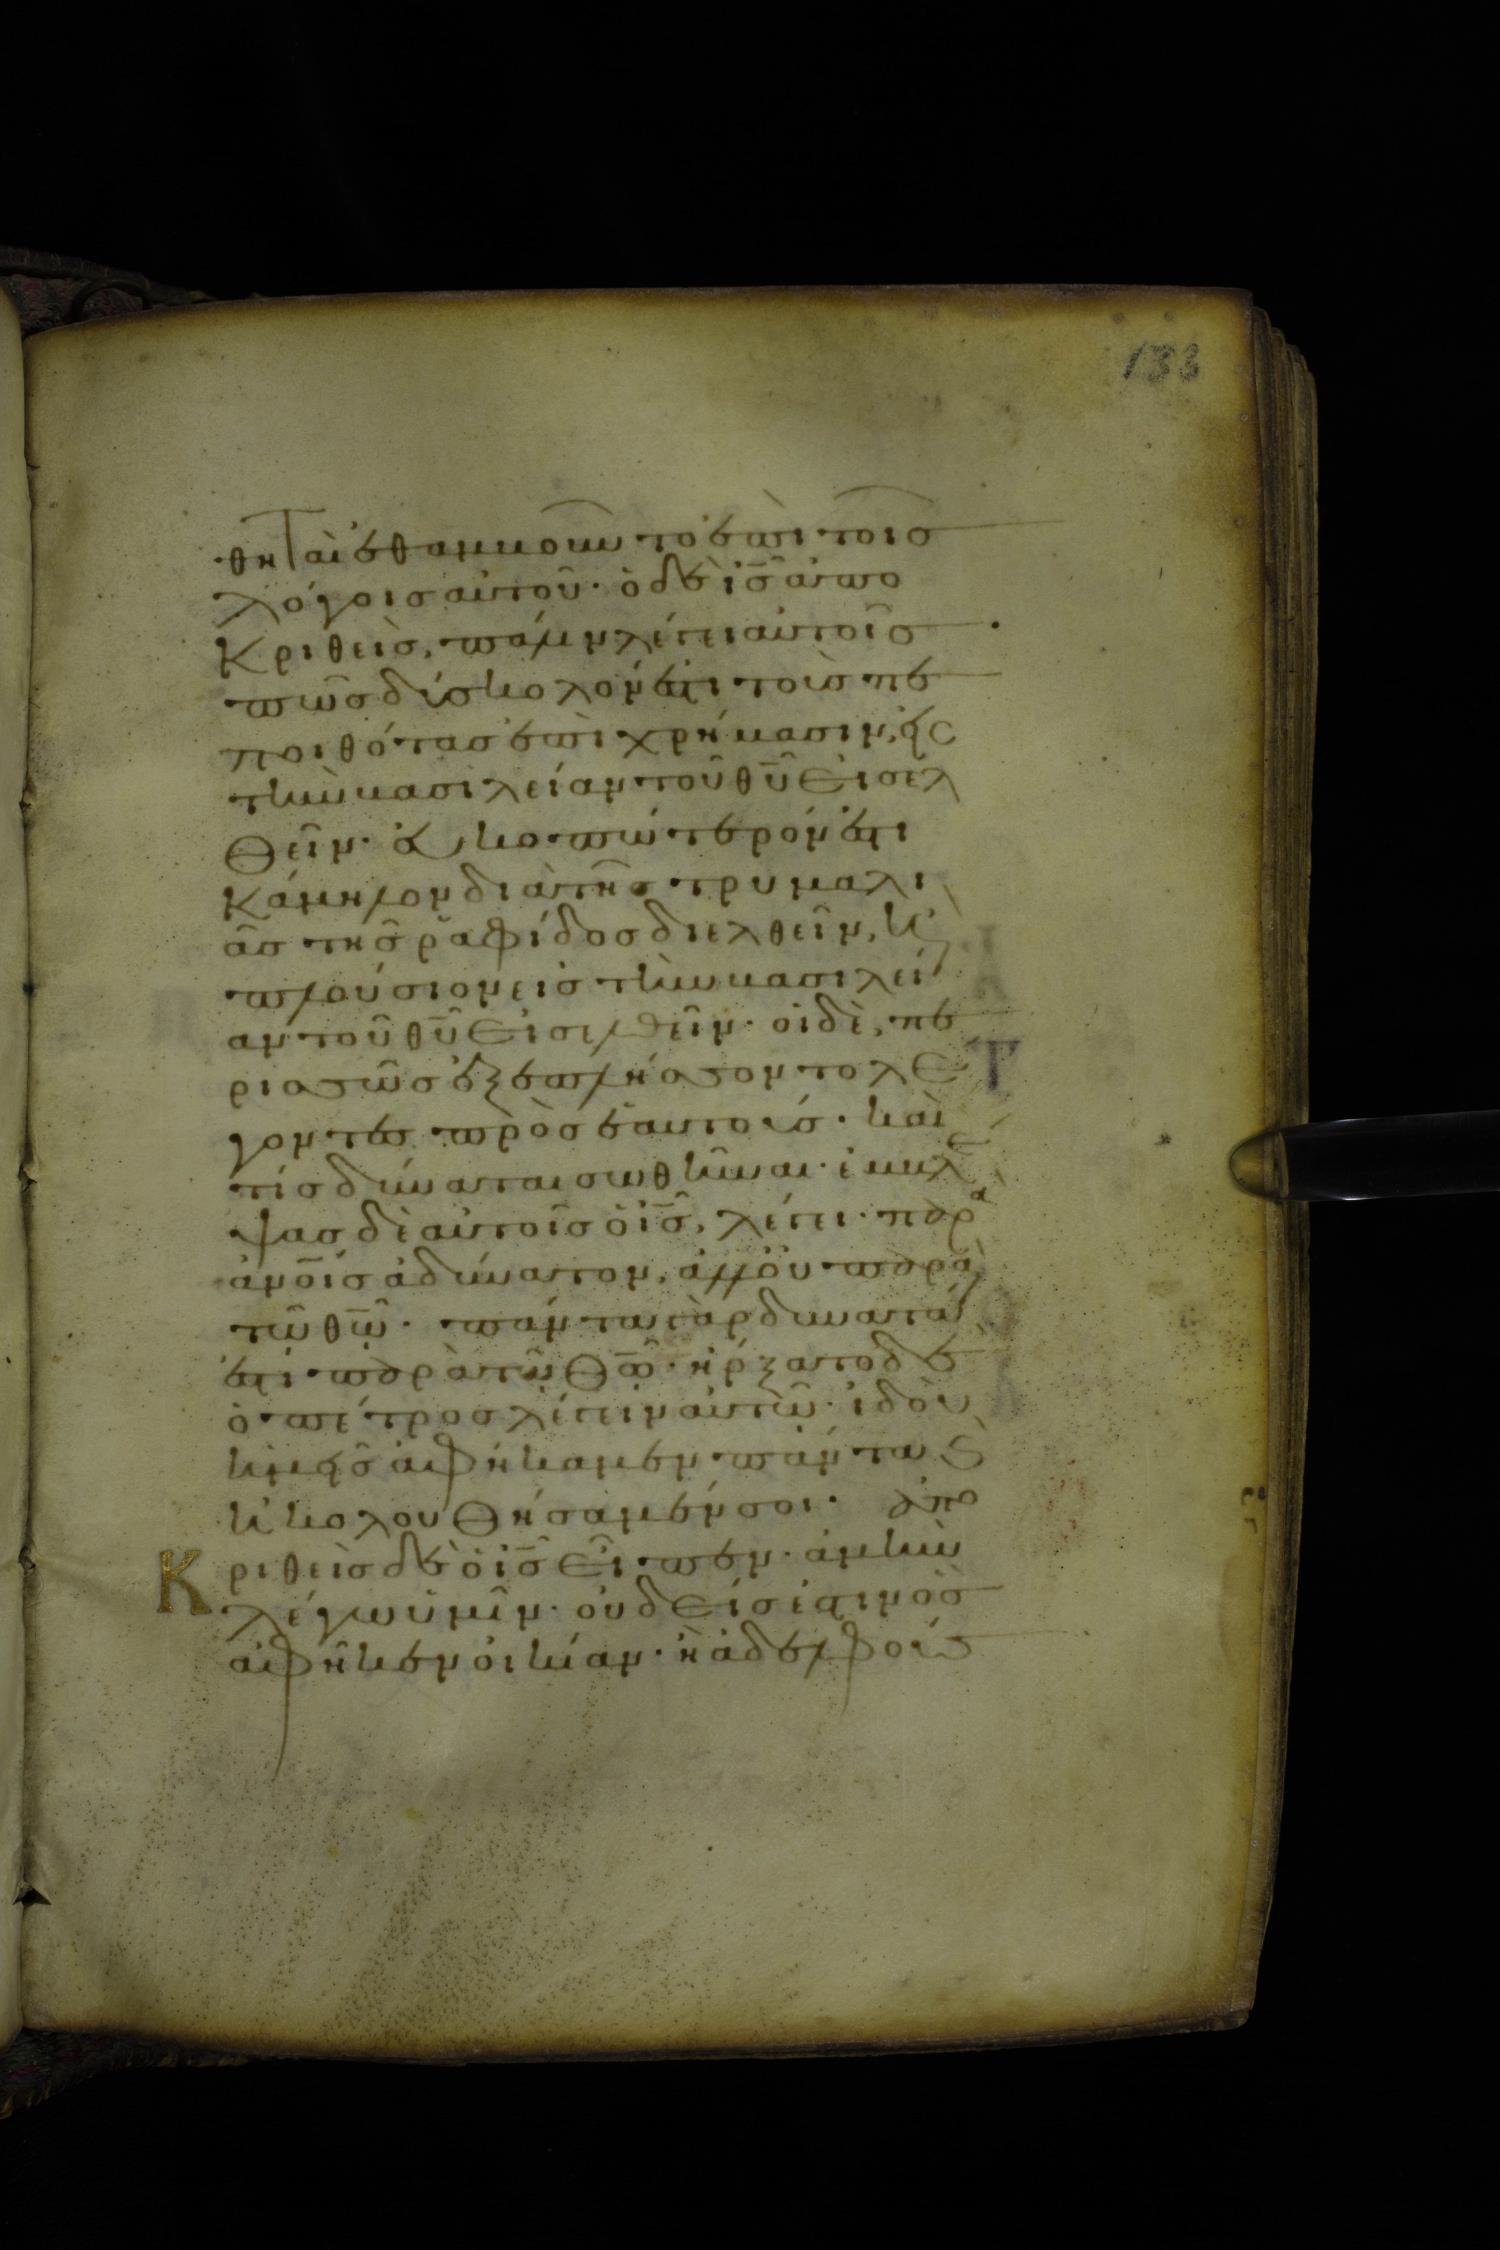 133
θηταὶ ἐθαμβοῦντο ἐπὶ τοῖς
λόγοις αὐτοῦ· ὁ δὲ ἰς̅ ἀπο
κριθεὶς, πάλιν λέγει αὐτοῖς
πῶς δύσκολόν ἐστι τοὺς πε
ποιθότας ἐπὶ χρήμασιν, εἰς
τὴν βασιλείαν τοῦ θυ̅ εἰσελ
θεῖν· εὐκοπώτερόν ἐστι
κάμηλον διὰ τῆς τρυμαλι
ᾶς τῆς ῥαφίδος διελθεῖν, ἢ
πλούσιον εἰς τὴν βασιλεί
αν τοῦ θυ̅ εἰσελθεῖν· οἱ δὲ, πε
ρισσῶς ἐξεπλήσσοντο λέ
γοντες πρὸς ἑαυτούς· καὶ
τίς δύναται σωθῆναι· ἐμβλέ
ψας δὲ αὐτοῖς ὁ ἰς̅, λέγει· παρὰ
ἀνοῖς ἀδύνατον, ἀλλ' οὐ παρὰ
τῶ θω̅· πάντα γὰρ δυνατά
ἐστι παρὰ τῶ θω̅· ἤρξατο δὲ
ὁ πέτρος λέγειν αὐτῶ· ἰδοὺ
ἡμεῖς ἀφήκαμεν πάντα καὶ
ἠκολουθήσαμέν σοι· ἀπο
κριθεὶς δὲ ὁ ἰς̅ εἶπεν· ἀμὴν
λέγω ὑμῖν· οὐδείς ἐστιν ὃς
ἀφῆκεν οἰκίαν· ἢ ἀδελφοὺς